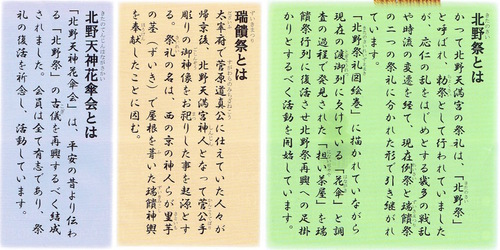 北野祭とは
かつて北野天満宮の祭礼は、「北野祭」
と呼ばれ、勅祭として行われていました
が、応仁の乱をはじめとする幾多の戦乱
や時流の変遷を経て、現在例祭と瑞饋祭
の二つの祭礼に分かれた形で引き継がれ
ています。
「北野祭礼図絵巻」に描かれていながら
現在の渡御列に欠けている「花傘」と調
査の過程で発見された「担い茶屋」を瑞
饋祭行列に復活させ北野祭再興への足掛
かりとするべく活動を開始しています。
瑞饋祭とは
太宰府で菅原道真公に仕えていた人々が
帰京後、北野天満宮神人となって菅公手
彫りの御神像をお祀りした事を起源とす
る。祭礼の名は、西の京の神人らが里芋
の茎(ずいき)で屋根を葺いた瑞饋神輿
を奉献したことに因む。
北野天神花傘会とは
「北野天神花傘会」は、平安の昔より伝わ
る「北野祭」の古儀を再興するべく結成
されました。会員は全て有志であり、祭
礼の復活を祈念し、活動しています。